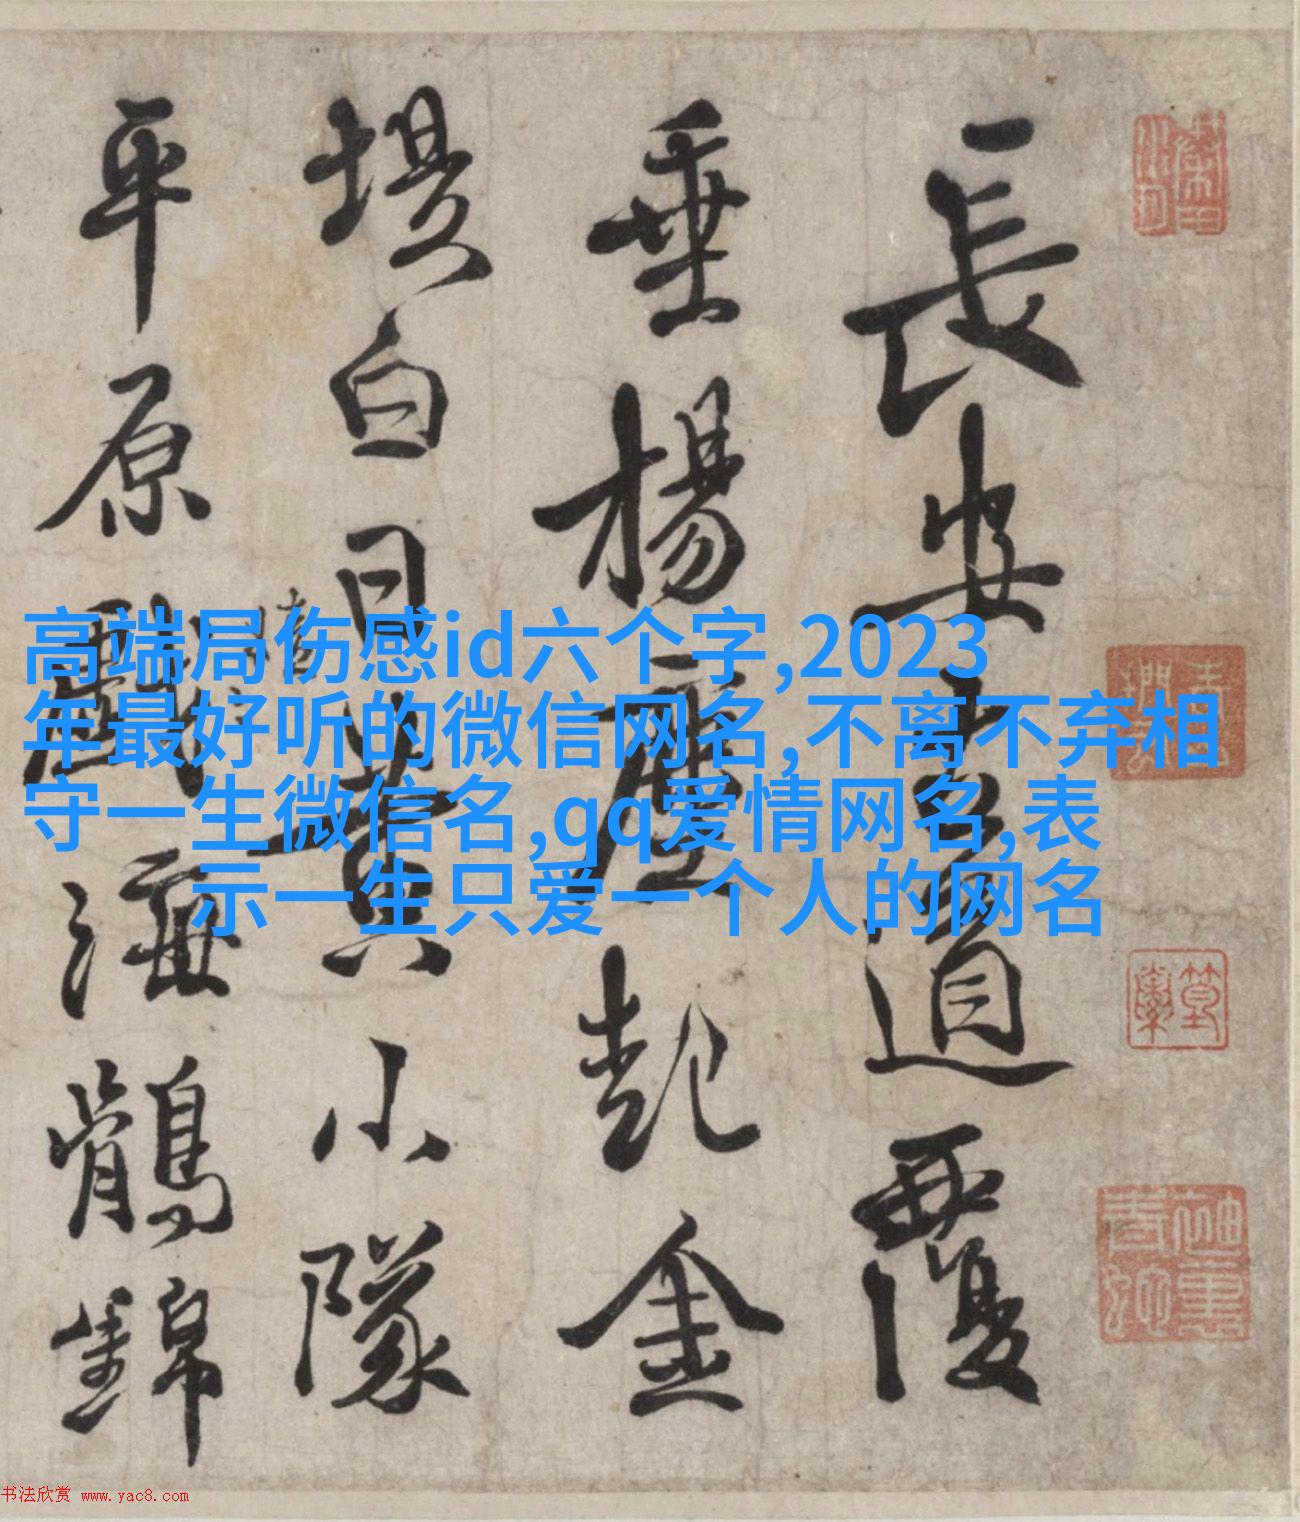 長安道覆
垂楊塵起金
堤白日黃小隊
平原海鶻錦
高端局伤感id六个字,2023
年最好听的微信网名,不离不弃相
守一生微信名,qq爱情网名,表
示一生只爱一个人的网名
书法欣赏 www.yac8.com